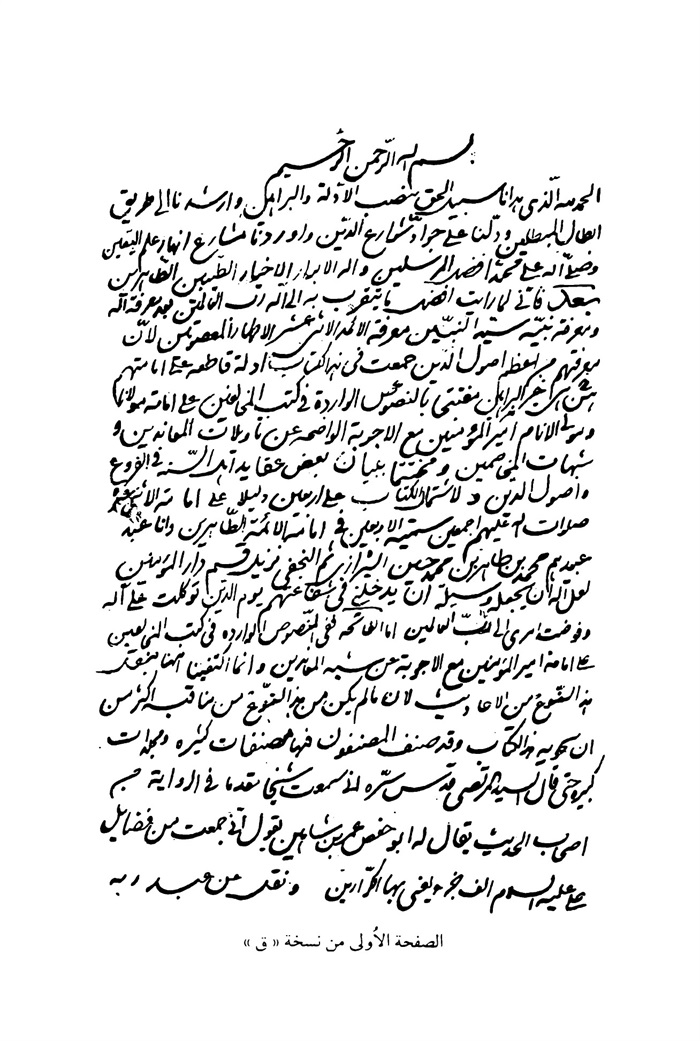 بسم الله الرّحمن الرّحيم
الحمد لله الّذي هدانا سبيل الحق بنصب الأدلة والبراهين وارشدنا الى طريق
ابطال المبطلين ودلّنا على جوادّ شوارع الدّين واوردنا مشارع انهار علم اليقين
وصلّى الله على محمّد افضل المرسلين واله الابرار الاخيار الطّيبين الطّاهرين
بعد فاني لما رايت افضل ما يتقرب به الى الله رب العالمين بعد معرفة الله
ومعرفة نبيّه سيّد النبيّين معرفة الائمة الاثنى عشر الاطهار المعصومين لانّ
معرفتهم من اعظم اصول الدّين جمعت في هذا الكتاب ادلة قاطعة على امامتهم
البراهين مفتتحا بالنصوص الواردة في كتب المخالفين على امامة مولانا
ومولى الانام امير المؤمنين مع الاجوبة الواضحة عن تاويلات المعاندين و
شبهات المخاصمين ومختتما ببيان بعض عقايد اهل السّنة في الفروع
واصول الدين ولاشتمال الكتاب على اربعين دليلا على امامة الائمة
صلوات الله عليهم اجمعين سميته الاربعين في امامة الائمة الطّاهرين وانا عبد
عبيدهم محمد طاهر بن محمد حسين الشيرازي ثم النجفي نزيل قم دار المؤمنين
لعل الله ان يجعله وسيلة ان يدخلني في شفاعتهم يوم الدّين توكلت على الله
وفوضت امرى الى ربّ العالمين اما الفاتحة ففى النّصوص الواردة في كتب المخالفين
على امامة امير المؤمنين مع الاجوبة عن شبه المعاندين وانما اكتفينا ههنا بنقل
هذا النّوع من الاحاديث لان ما لم يكن من هذا النّوع من مناقبه اكثر من
ان يحويه هذا الكتاب وقد صنف المصنفون فيها مصنفات كثيره ومجلدات
كبيره حتى قال السيد المرتضى قدس سرّه انى سمعت شيخا مقدما في الرواية من
اصحاب الحديث يقال له ابو حفص عمر بن شاهين يقول انّى جمعت من فضايل
على عليه السلام الف جزء ونقل من عبد ربه
الصفحة الأولى من نسخة « ق »